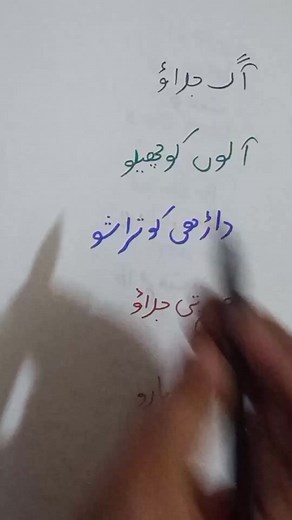 آگ جلاؤ
آلوں کو چھیلو
داڑھی کو تراشو
جلاؤ